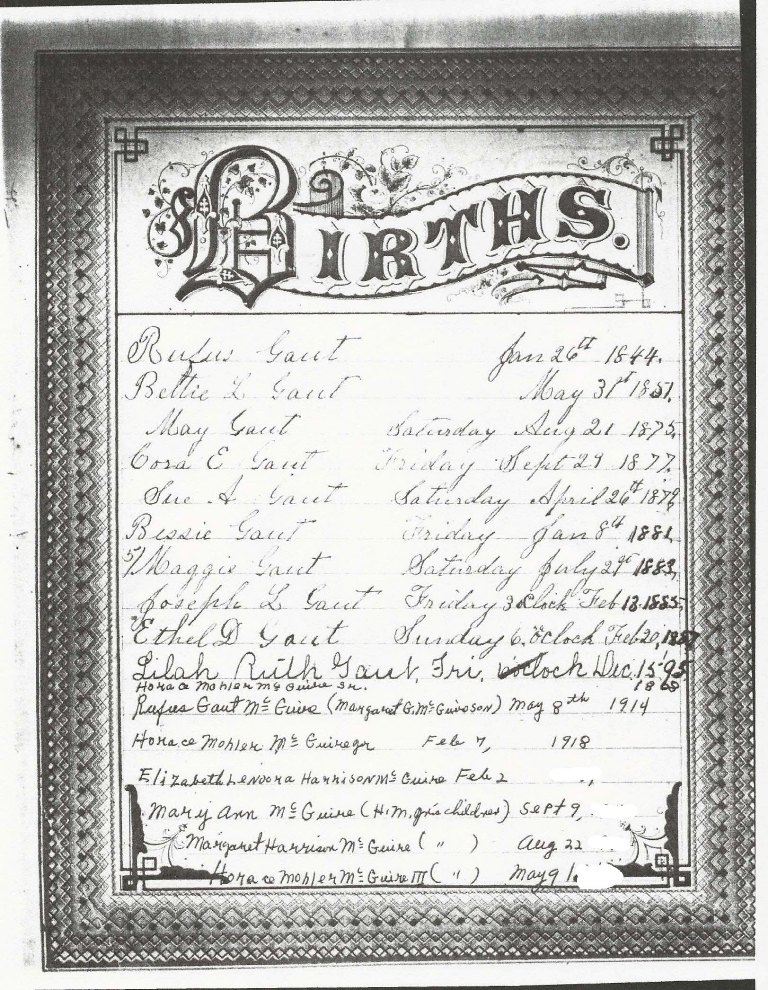 BIRTHS.
Rufus Gaut Jan 26th 1844.
Bettie L Gaut May 31st 1851.
May Gaut Saturday Aug 21 1875,
Cora E Gaut Friday Sept 1877.
Sue A. Gaut Saturday April 26th 1879,
Bessie Gaut Friday Jan 8th 1881.
5/ Maggie Gaut Saturday July 21st 1883,
Joseph L Gaut Friday 3 Feb 13. 1885,
Ethel D Gaut Sunday 6. O'clock Feb 20, 1887
Lilah Ruth Gaut, Fri, oclock Dec. 13'95
Horace Mohler McGuire Sr. 1868
Rufus Gaut McGuire (Margaret G. McGuire son) May 8th 1914
Horace Mohler McGuire Jr Feb 7, 1918
Elizabeth Lenoora Harrison McGuire Feb 2
Mary Ann McGuire (H.M. Jr's children) Sept 9,
Margaret Harrison McGuire ( " ) Aug 22
Horace Mohler McGuire III ( " ) May 9 1.